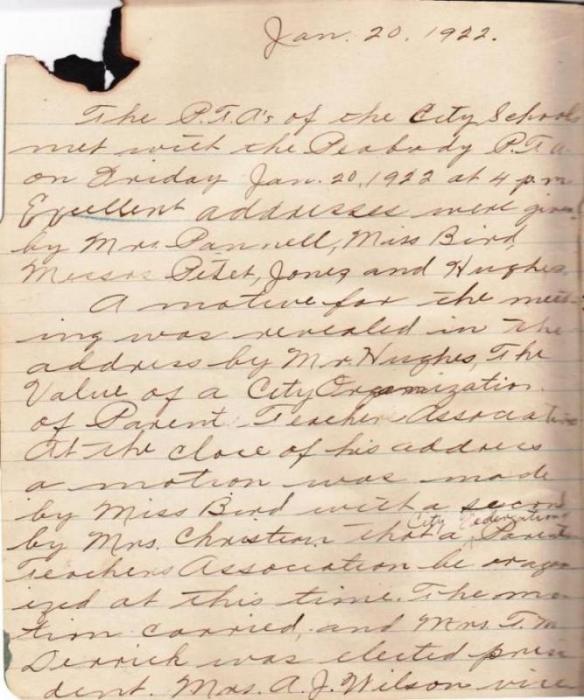 Jan. 20, 1922.
The P.T.A's of the City Schools
met with the Peabody P.T.A
on Friday Jan. 20, 1922 at 4 p.m
Excellent addresses were given
by Mrs. Pannell, Miss Bird,
Messrs Petet, Jones and Hughes.
A motive for the meet-
ing was revealed in the
address by Mr. Hughes, The
Value of a City Organization
of Parent Teacher Association
At the close of his address
a motion was made
by Miss Bird with a second
by Mrs. Christian that a City Federation Parent
Teachers Association be organ
ized at this time. The mo
tion carried, and Mrs. T. M
Derrick was elected presi
dent. Mrs. A. J. Wilson vice